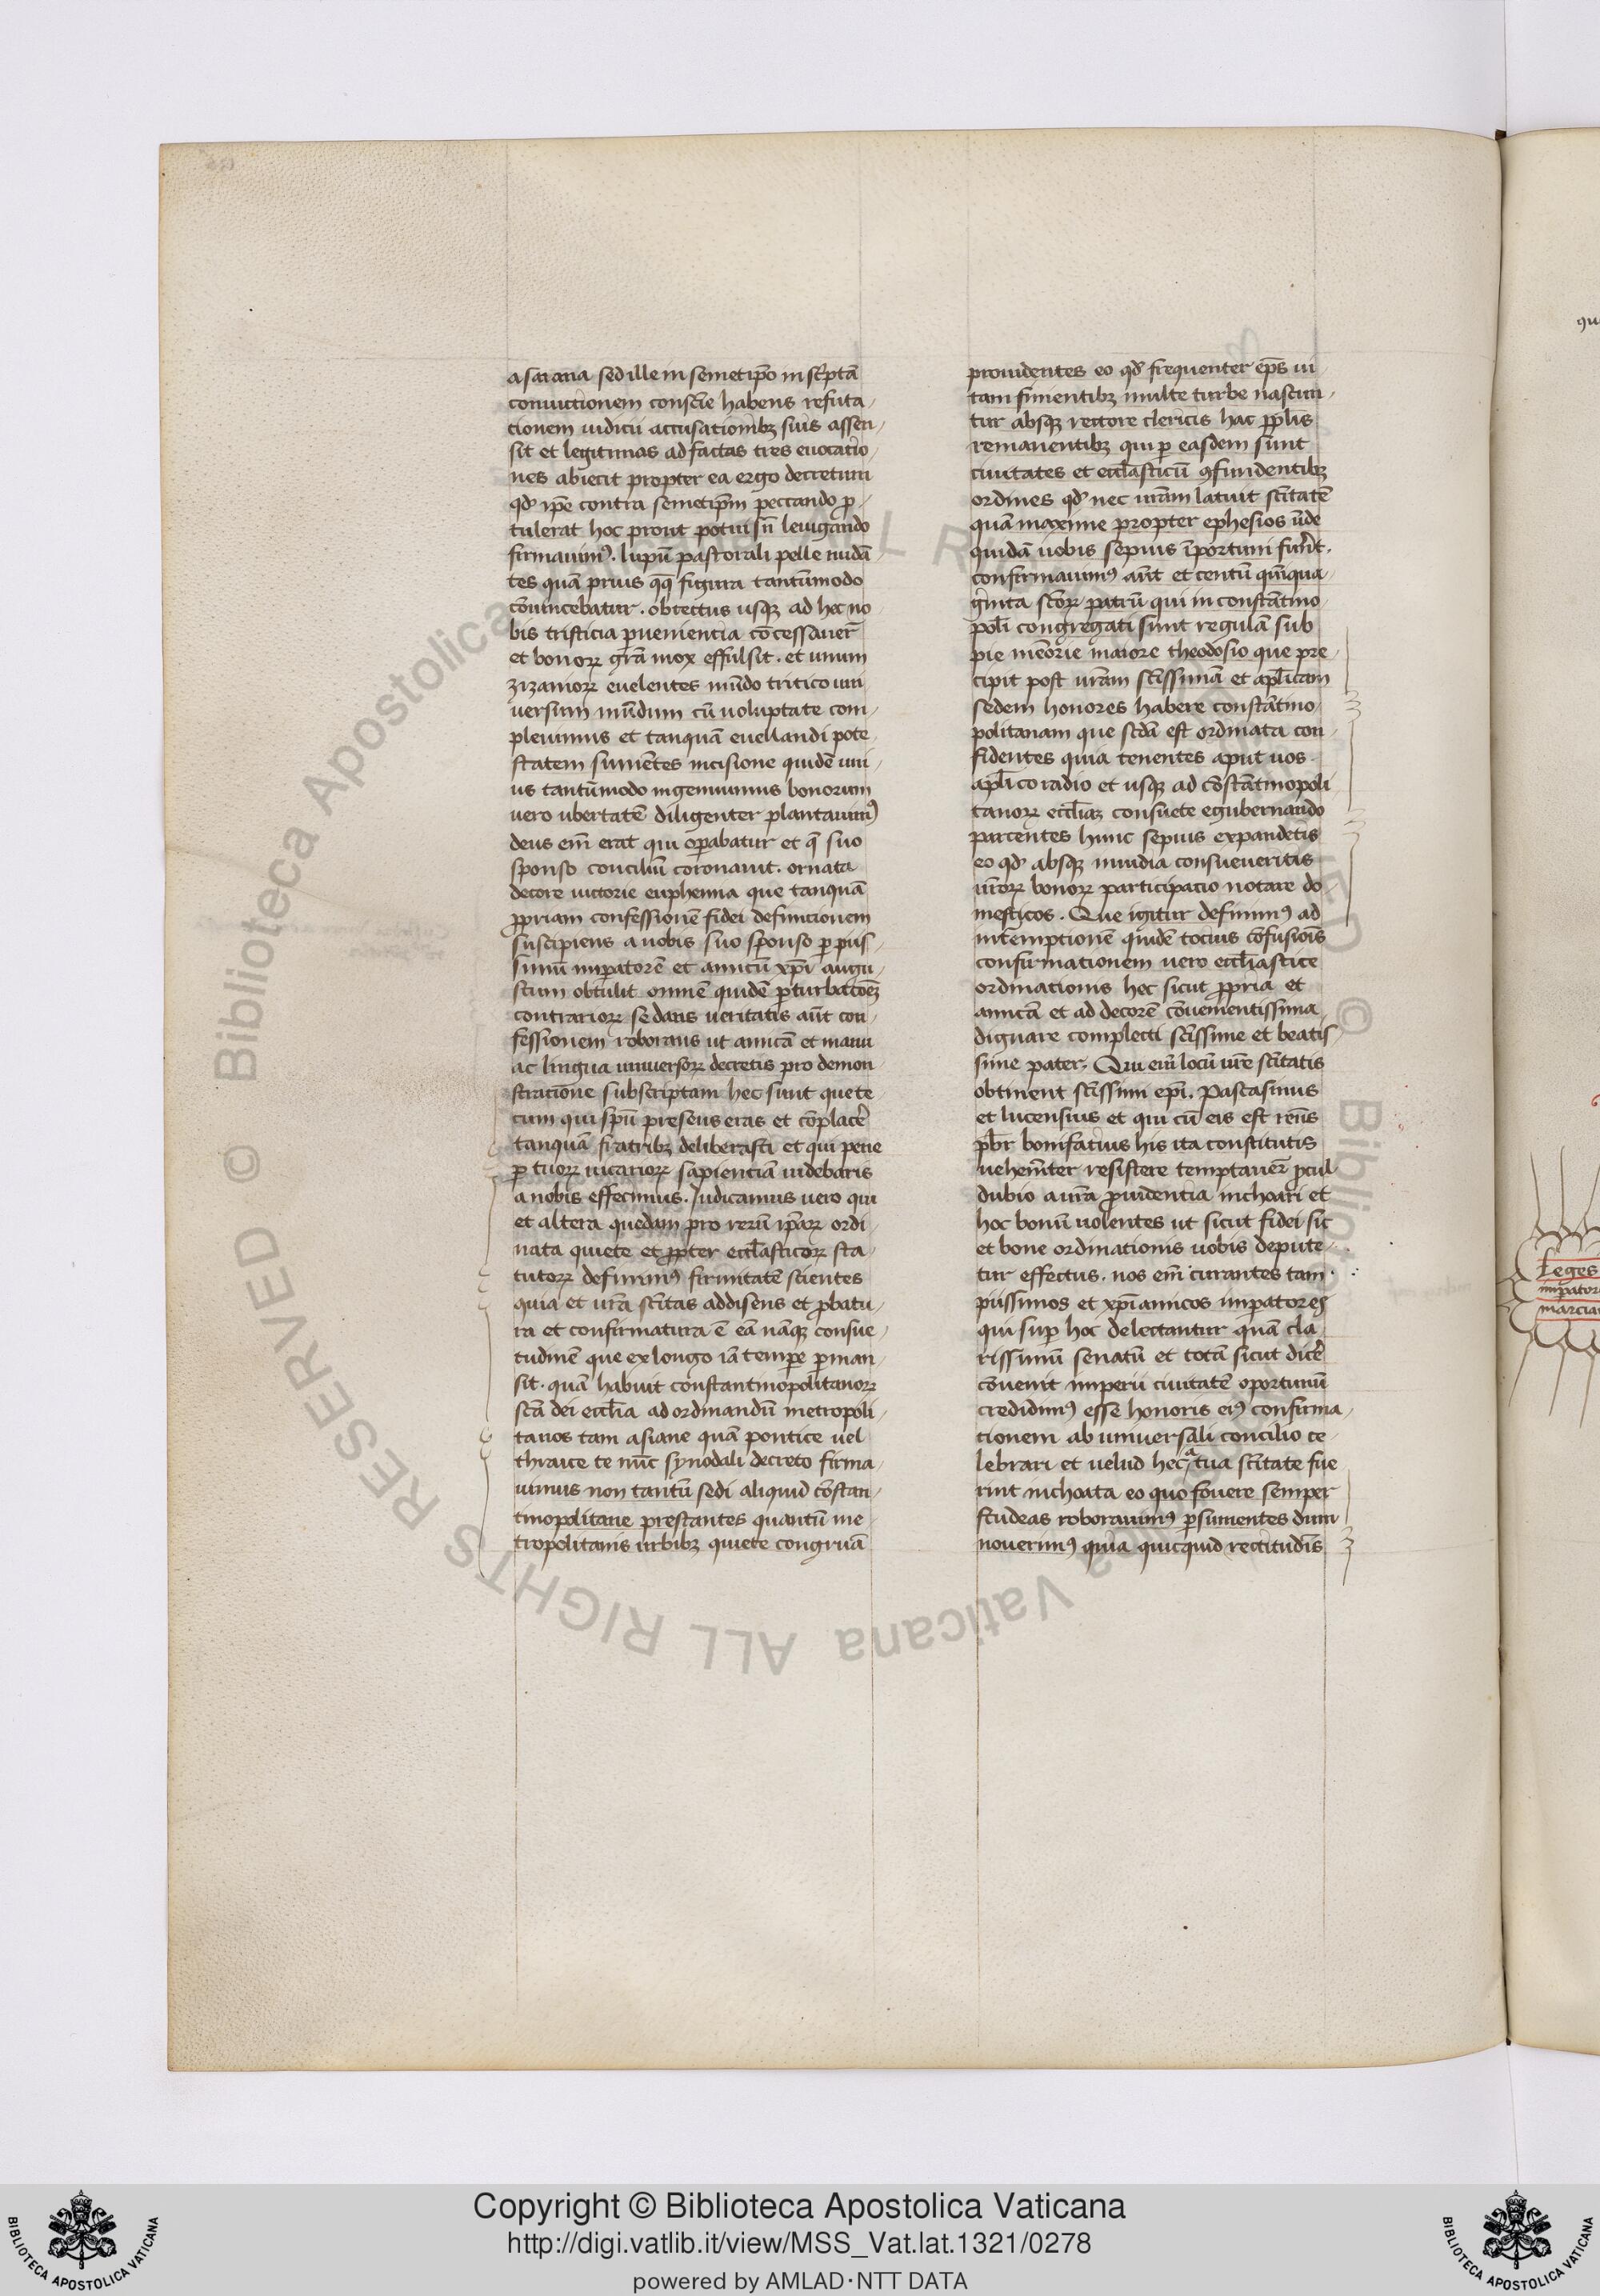 a satana sed ille in semetip̄o inſc̄ptā
conuictionem consc̄ie habens refuta
tionem iudicii accusationibꝫ suis assen
sit et legitimas ad factas tres euocatio
nes abiecit propter ea ergo decretum
qđ ip̄e contra semetip̄m peccando ꝓ
tulerat hoc prout potuiſn̄ leuigando
firmauimꝰ. lupū pastorali pelle nudā
tes quā prius qꝫ figura tantūmodo
cōuincebatur. obtectus usqꝫ ad hec no
bis tristicia ꝑueniencia cōcessauer̄
et bonoꝝ gr̄a mox effulsit. et unum
zizanioꝝ euelentes mūdo tritico uni
uersum mūdum cū uoluptate com
pleuimus et tanquā euellandi pote
statem sumētes incisione quidē uni
us tantūmodo ingemuimus bonorum
uero ubertatē diligenter plantauimꝰ
deus em̄ erat qui oꝑabatur et q̄ suo
sponso conciliū coronauit. ornata
decore uictorie euphemia que tanquā
ꝓpriam confessionē fidei definicionem
suscipiens a nobis suo sponso ꝑ piis
simū imꝑatorē et amicū xp̄i augu
stum obtulit omnē quidē ꝑturbacōeꝫ
contrarioꝝ sedans ueritatis aūt con
fessionem roborans ut amicā et manu
ac lingua uniuersoꝝ decretis pro demon
stratione subscriptam hec sunt que te
cum qui spū presens eras et cōplacēr
tanquā fratribꝫ deliberasti et qui pene
ꝑ tuoꝝ uicarioꝝ sapienciā uidebaris
a nobis effecimus. Iudicamus uero qui
et altera quedam pro rerū ip̄aꝝ ordi
nata quiete et ꝓpter eccl̄asticoꝝ sta
tutoꝝ definimꝰ firmitatē scientes
quia et ur̄a sc̄itas addisens et ꝓbatu
ra et confirmatura ē eā nāqꝫ consue
tudinē que ex longo iā tempe ꝑman
sit. quā habuit constantinopolitanoꝝ
sc̄a dei eccl̄ia ad ordinandū metropoli
tanos tam asiane quā pontice uel
thraice te nūc synodali decreto firma
uimus non tantū sedi aliquid cōstan
tinopolitane prestantes quantū me
tropolitanis urbibꝫ quiete congruā
prouidentes eo qđ frequenter ep̄s ui
tam finientibꝫ multe turbe nascun
tur absqꝫ rectore clericis hac ꝓplis
remanentibꝫ qui ꝑ easdem sunt
ciuitates et eccl̄asticū ꝯfundentibꝫ
ordines qđ nec ur̄am latuit sc̄itatē
quā maxime propter ephesios ūde
quidā uobis sepius īportuni fuer̄t.
confirmauimꝰ aūt et centū quīqua
ginta sc̄oꝝ patrū qui in constātino
poli congregati sunt regulā sub
pie memorie maiore theodosio que pre
cipit post ur̄am sc̄issimā et apl̄icam
sedem honores habere constātino
politanam que sc̄da est ordinata con
fidentes quia tenentes aput uos
apl̄ico radio et usqꝫ ad cōstātinopoli
tanoꝝ eccl̄iaꝫ consuete egubernando
parcentes hunc sepius expandetis
eo qđ absqꝫ inuidia consueueritis
ur̄oꝝ bonoꝝ participacio notare do
mesticos. Que igitur definimꝰ ad
intemptionē quidē tocius cōfusiois
confirmationem uero eccl̄iastice
ordinationis hec sicut ꝓpria et
amicā et ad decorē cōuenientissima
dignare complecti sc̄issime et beatis
sime pater. Qui em̄ locū ur̄e sc̄itatis
obtinent sc̄issimi ep̄i. Pascasinus
et lucensius et qui cū eis est reūs
pb̄r bonifatius his ita constitutis
uehem̄ter resistere temptauer̄ ꝓcul
dubio a ur̄a ꝓuidentia inchoari et
hoc bonū uolentes ut sicut fidei sit
et bone ordinationis uobis depute
tur effectus. nos em̄ curantes tam
piissimos et xp̄iamicos imꝑatores
qui suꝑ hoc delectantur quā cla
rissimū senatū et totā sicut dicēr
cōuenit imperii ciuitatē oportunū
credidimꝰ esse honoris eiꝰ confirma
tionem ab uniuersali concilio ce
lebrari et uelud hec a tua sc̄itate fue
rint inchoata eo quo fouere semper
studeas roborauimꝰ p̄sumentes dum
nouerimꝰ quia quicquid rectitudīs
qu
Leges
imꝑator
marcia
Copyright © Biblioteca Apostolica Vaticana
http://digi.vatlib.it/view/MSS_Vat.lat.1321/0278
powered by AMLAD·NTT DATA
BIBLIOTECA APOSTOLICA VATICANA
BIBLIOTECA APOSTOLICA VATICANA
© Biblioteca Apostolica Vaticana ALL RIGHTS RESERVED